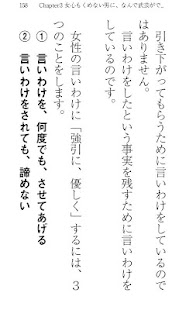 158
Chapter3 女心もくめない男に、なんで武芸がで。
引き下がってもらうために言いわけをしているので
はありません。
言いわけをしたという事実を残すために言いわけを
しているのです。
女性の言いわけに「強引に、優しく」するには、3
つのことをします。
① 言いわけを、何度でも、させてあげる
② 言いわけをされても、諦めない